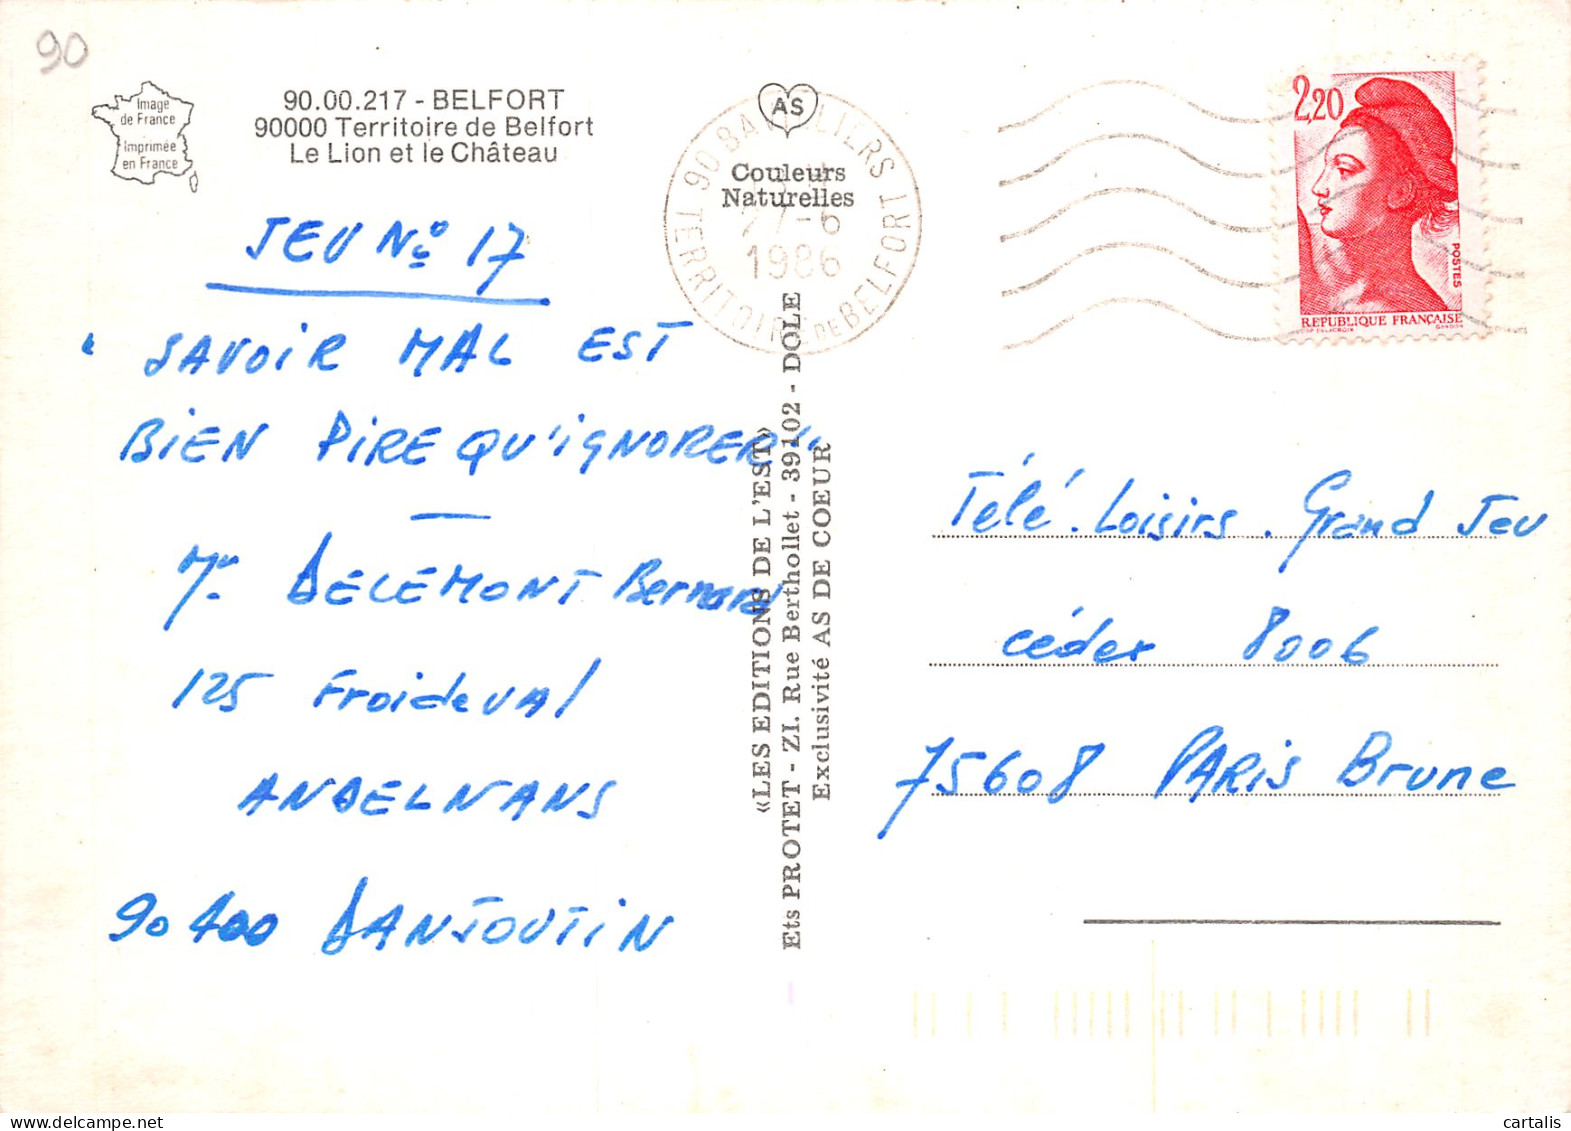 90
Image
de France
Imprimée
en France
90.00.217 - BELFORT
90000 Territoire de Belfort
Le Lion et le Château
JEU N° 17
"SAVOIR MAL EST
BIEN PIRE QU'IGNORER"
Mr DELEMONT Bernard
125 Froideval
ANDELNANS
90 400 DANJOUTIN
AS
Couleurs
Naturelles
90 BAVILLIERS
-6
1986
TERRITOIRE DE BELFORT
«LES EDITIONS DE L'EST»
Ets PROTET - ZI. Rue Berthollet - 39102 - DOLE
Exclusivité AS DE COEUR
2,20
POSTES
REPUBLIQUE FRANÇAISE
GANDON
Télé.Loisirs.Grand Jeu
cédex 8006
75608 PARIS Brune
cartalis